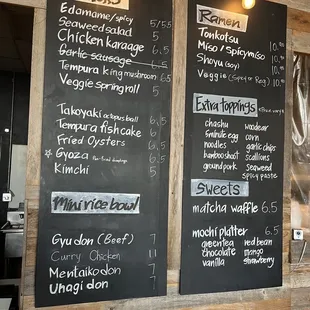 Edamame/spicy 5/5.5
Seaweed salad 5
Chicken karaage 6.5
Garlic sausage 6.5
Tempura king mushroom 6.5
Veggie spring roll 5
Takoyaki octopus ball 6.5
Tempura fishcake 6
Fried Oysters 6.5
Gyoza Pan-fried dumplings 6.5
Kimchi 5
Mini rice bowl
Gyudon (Beef) 7
Curry Chicken
Mentaiko don 7
Unagi don 7
Ramen
Tonkotsu
Miso/Spicy miso 10.
Shoyu (soy) 10.
Veggie 10.
Extra toppings
chashu
5 minute egg
noodles
bamboo shoot
ground pork
woodear
corn
garlic chips
scallions
seaweed
spicy paste
Sweets
matcha waffle 6.5
mochi platter 6.5
green tea
chocolate
vanilla
red bean
mango
strawberry